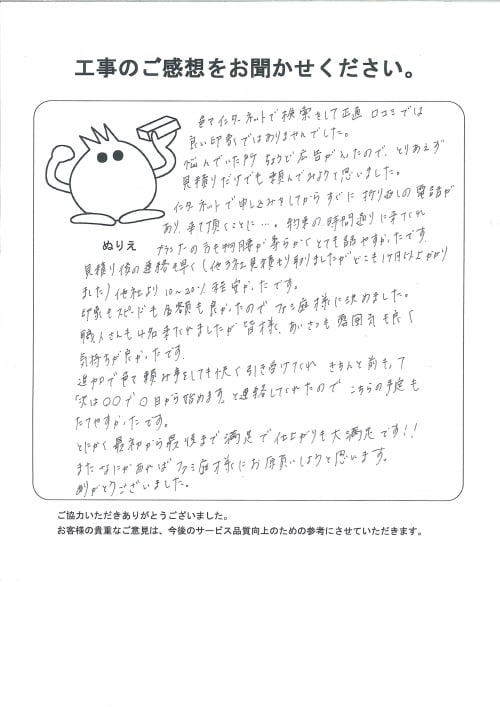 工事のご感想をお聞かせください。
色々インターネットで検索をして正直 口コミでは
良い印象ではありませんでした。
悩んでいた所 ちょうど広告が入たので、とりあえず
見積りだけでも頼んでみようて思いました。
インターネットで申し込みをしてからすぐに折り返しの電話が
あり、来て頂くことに…。約束の時間通りに来てくれ
プランナーの方も物腰が柔らかくとても話やすかたです。
ぬりえ
見積り後の連絡も早く(他3社見積もり取りましたがどこも1ヶ月以上かかり
ました)他社より10〜20%程安かたです。
印象もスピードも金額も良かたので ファミ庭様に決めました。
職人さんも4名来てくれましたが皆様、あいさつも雰囲気も良く
気持ちが良かたです。
追加で色々頼み事をしても快く引き受けてくれ きちんと前もって
「次は○○で○日から始めます」と連絡してくれたので こちらの予定も
たてやすかたです。
とにかく最初から最後まで満足で仕上がりも大満足です!!
またなにかあれば ファミ庭様にお願いしようと思います。
ありがとうございました。
ご協力いただきありがとうございました。
お客様の貴重なご意見は、今後のサービス品質向上のための参考にさせていただきます。